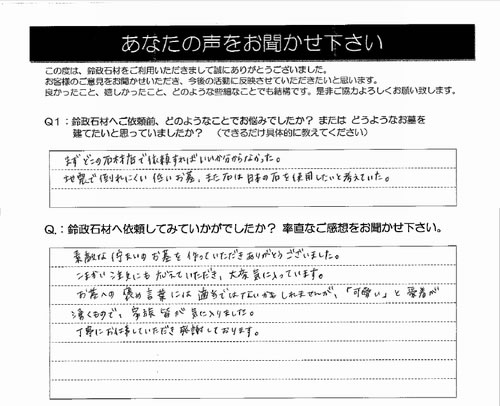 あなたの声をお聞かせ下さい
この度は、鈴政石材をご利用いただきまして誠にありがとうございました。
お客様のご意見をお聞かせいただき、今後の活動に反映させていただきたいと思います。
良かったこと、嬉しかったこと、どのような些細なことでも結構です。是非ご協力よろしくお願い致します。
Q1：鈴政石材へご依頼前、どのようなことでお悩みでしたか？ または どうようなお墓を
建てたいと思っていましたか？ （できるだけ具体的に教えてください）
まずどこの石材店で依頼すればいいか分からなかった。
地震で倒れにくい低いお墓、また石は日本の石を使用したいと考えていた。
Q.：鈴政石材へ依頼してみていかがでしたか？ 率直なご感想をお聞かせ下さい。
素敵な佇まいのお墓を作っていただきありがとうございました。
こまかい注文にも応えていただき、大変気に入っています。
お墓への褒め言葉には適当ではないかもしれませんが、「可愛い」と愛着が
湧くもので、家族皆が気に入りました。
丁寧にお仕事していただき感謝しております。